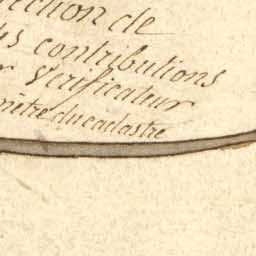 rection de
es contributions
r Vérificateur
mètre du cadastre